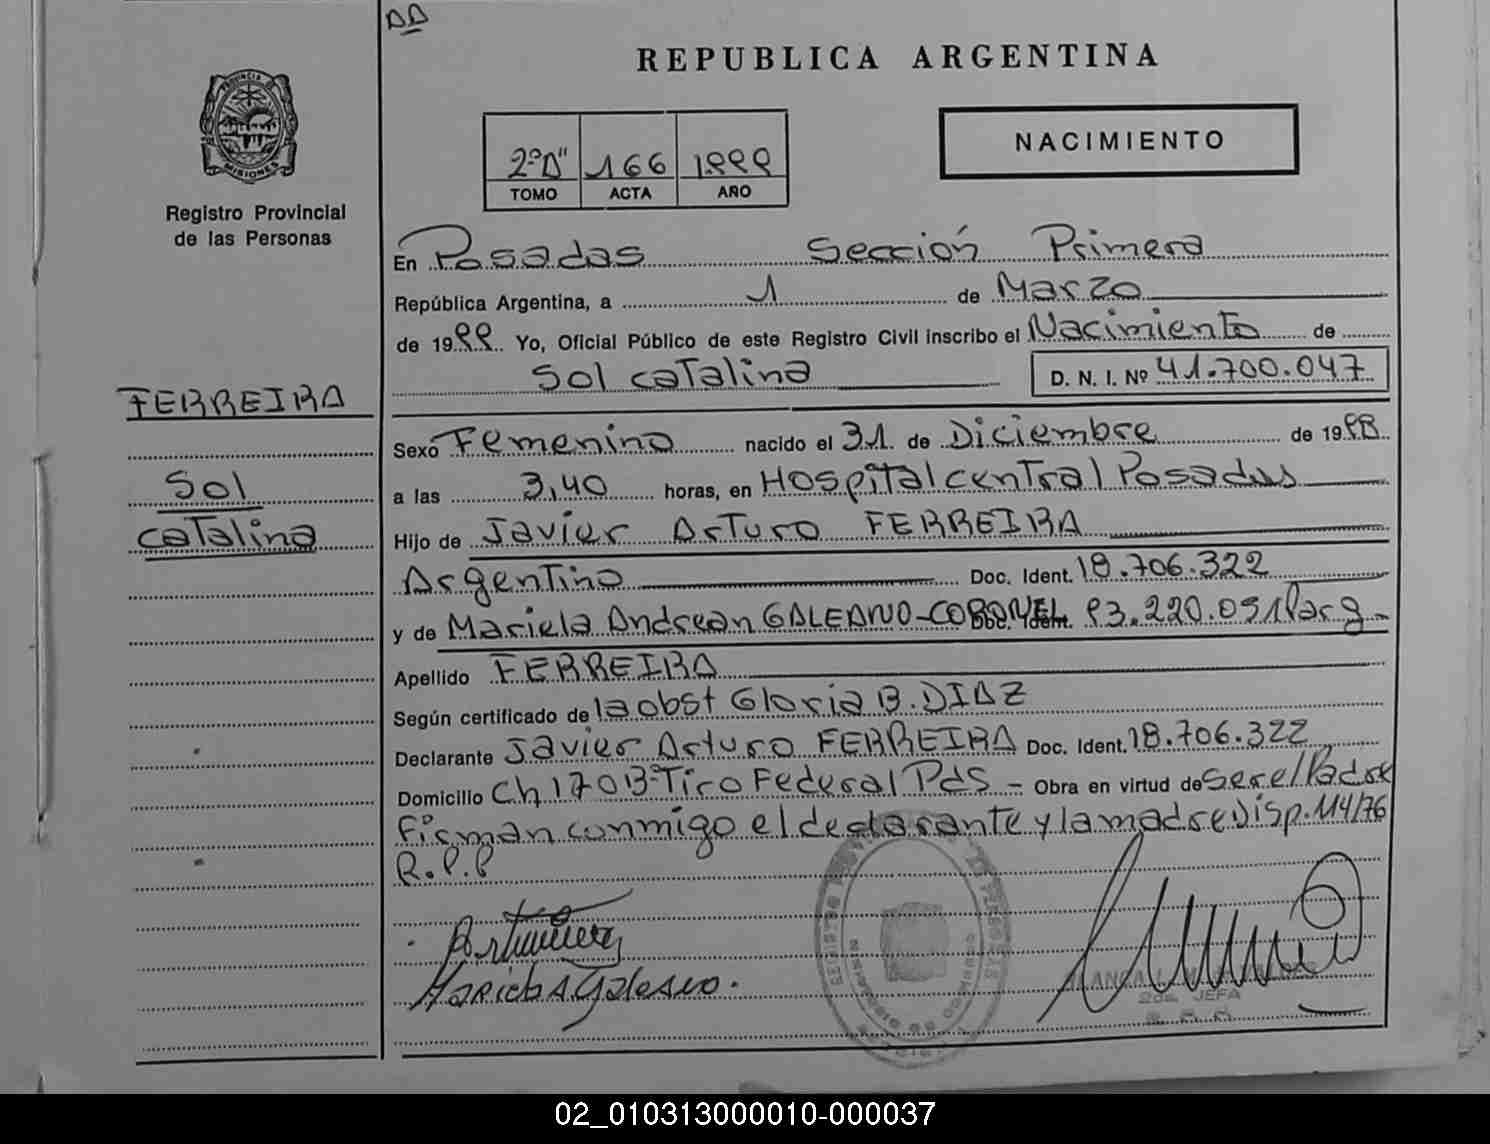 AA
REPUBLICA ARGENTINA
PROVINCIA DE
MISIONES
Registro Provincial
de las Personas
2º"A" 166 1999
TOMO ACTA AÑO
NACIMIENTO
En Posadas Sección Primera
República Argentina, a 1 de Marzo
de 1999 Yo, Oficial Público de este Registro Civil inscribo el Nacimiento de
Sol Catalina D. N. I. Nº 41.700.047
FERREIRA
Sol
Catalina
Sexo Femenino nacido el 31 de Diciembre de 1998
a las 3,40 horas, en Hospital Central Posadas
Hijo de Javier Arturo FERREIRA
Argentino Doc. Ident. 18.706.322
y de Mariela Andrean GALEANO-CORONEL Doc. Ident. 93.220.051 Parg
Apellido FERREIRA
Según certificado de la obst Gloria B. DIAZ
Declarante Javier Arturo FERREIRA Doc. Ident. 18.706.322
Domicilio Ch 170 Bº Tiro Federal Pds - Obra en virtud de ser el Padre
Firman conmigo el declarante y la madre Disp. 114/76
R.P.P
2da. JEFA
02_010313000010-000037